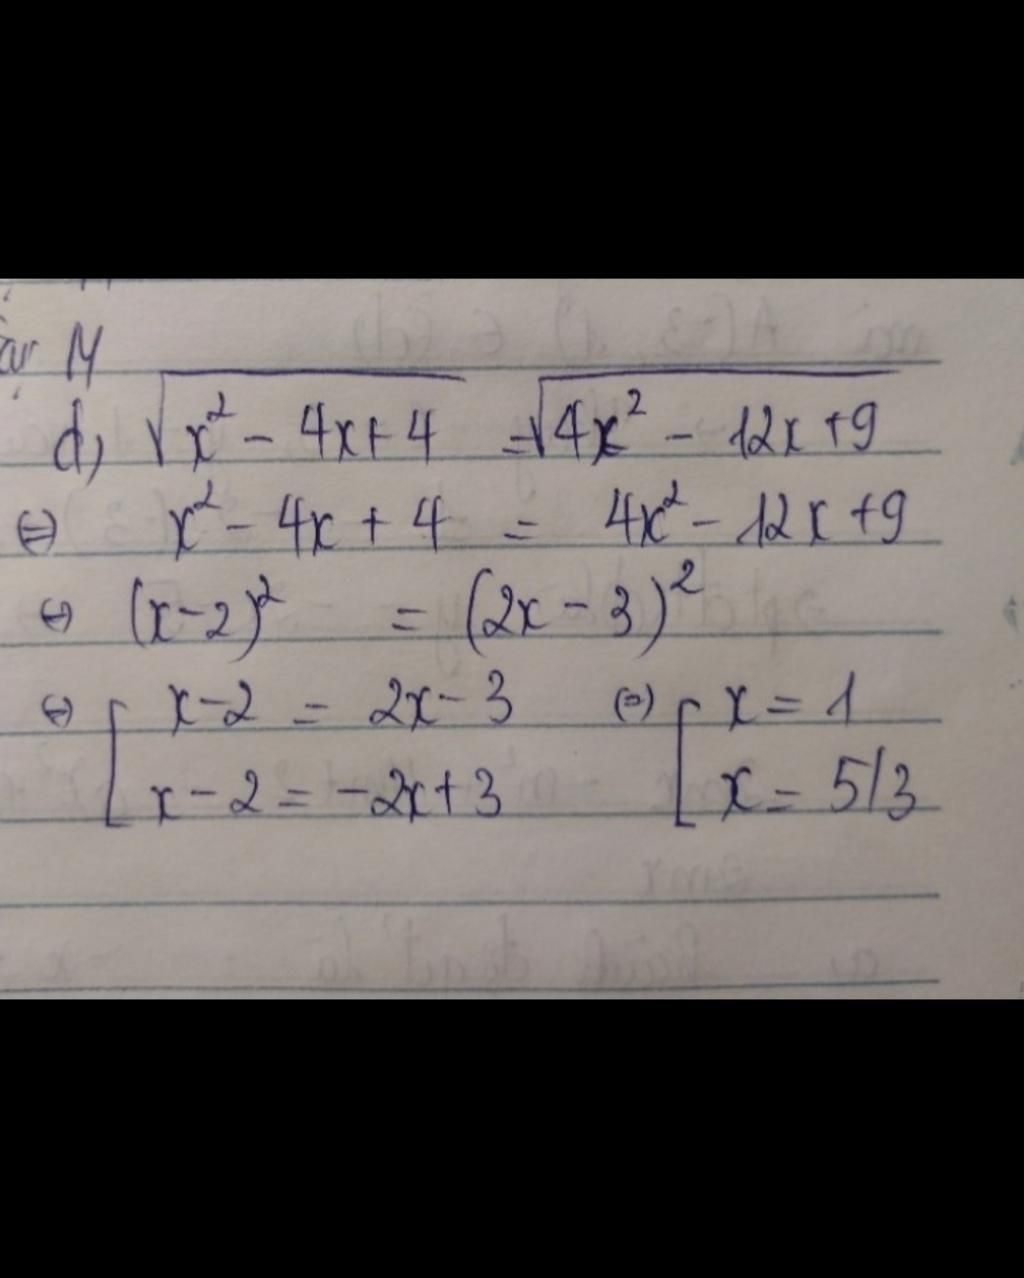 14
d, √(x² - 4x + 4) = √(4x² - 12x + 9)
⇔ x² - 4x + 4 = 4x² - 12x + 9
⇔ (x-2)² = (2x - 3)²
⇔ [ x-2 = 2x - 3 ⇔ [ x = 1
x - 2 = -2x + 3 x = 5/3